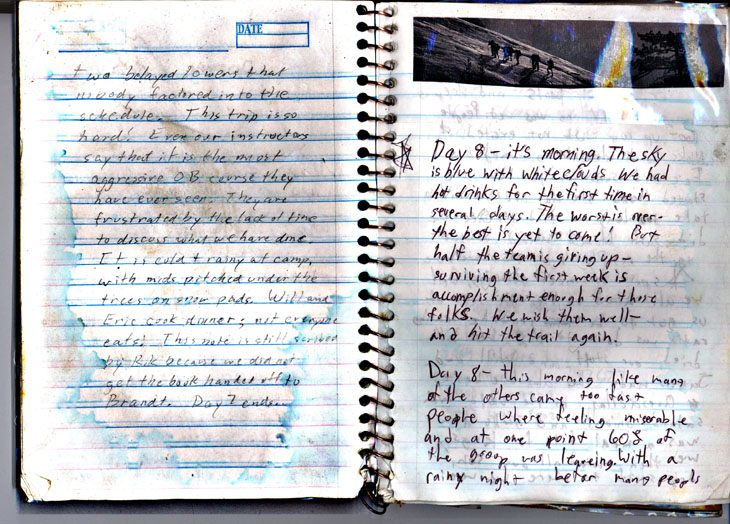 DATE
two belayed lowers that
nobody factored into the
schedule. This trip is so
hard! Even our instructors
say that it is the most
aggressive OB course they
have ever seen. They are
frustrated by the lack of time
to discuss what we have done.
It is cold & rainy at camp,
with mids pitched under the
trees on snow pads. Will and
Eric cook dinner; not everyone
eats! This note is still scribed
by Rik because we did not
get the book handed off to
Brandt. Day 7 ends...
Day 8 - it's morning. The sky
is blue with white clouds. We had
hot drinks for the first time in
several days. The worst is over -
the best is yet to come! But
half the team is giving up -
surviving the first week is
accomplishment enough for those
folks. We wish them well -
and hit the trail again!
Day 8 - this morning like many
of the others came too fast
people where feeling miserable
and at one point 60% of
the group was leaveing. With a
rainy night before many people